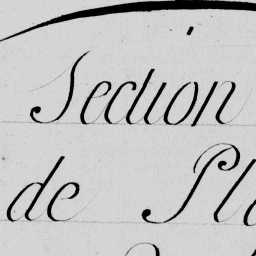 Section
de Pl